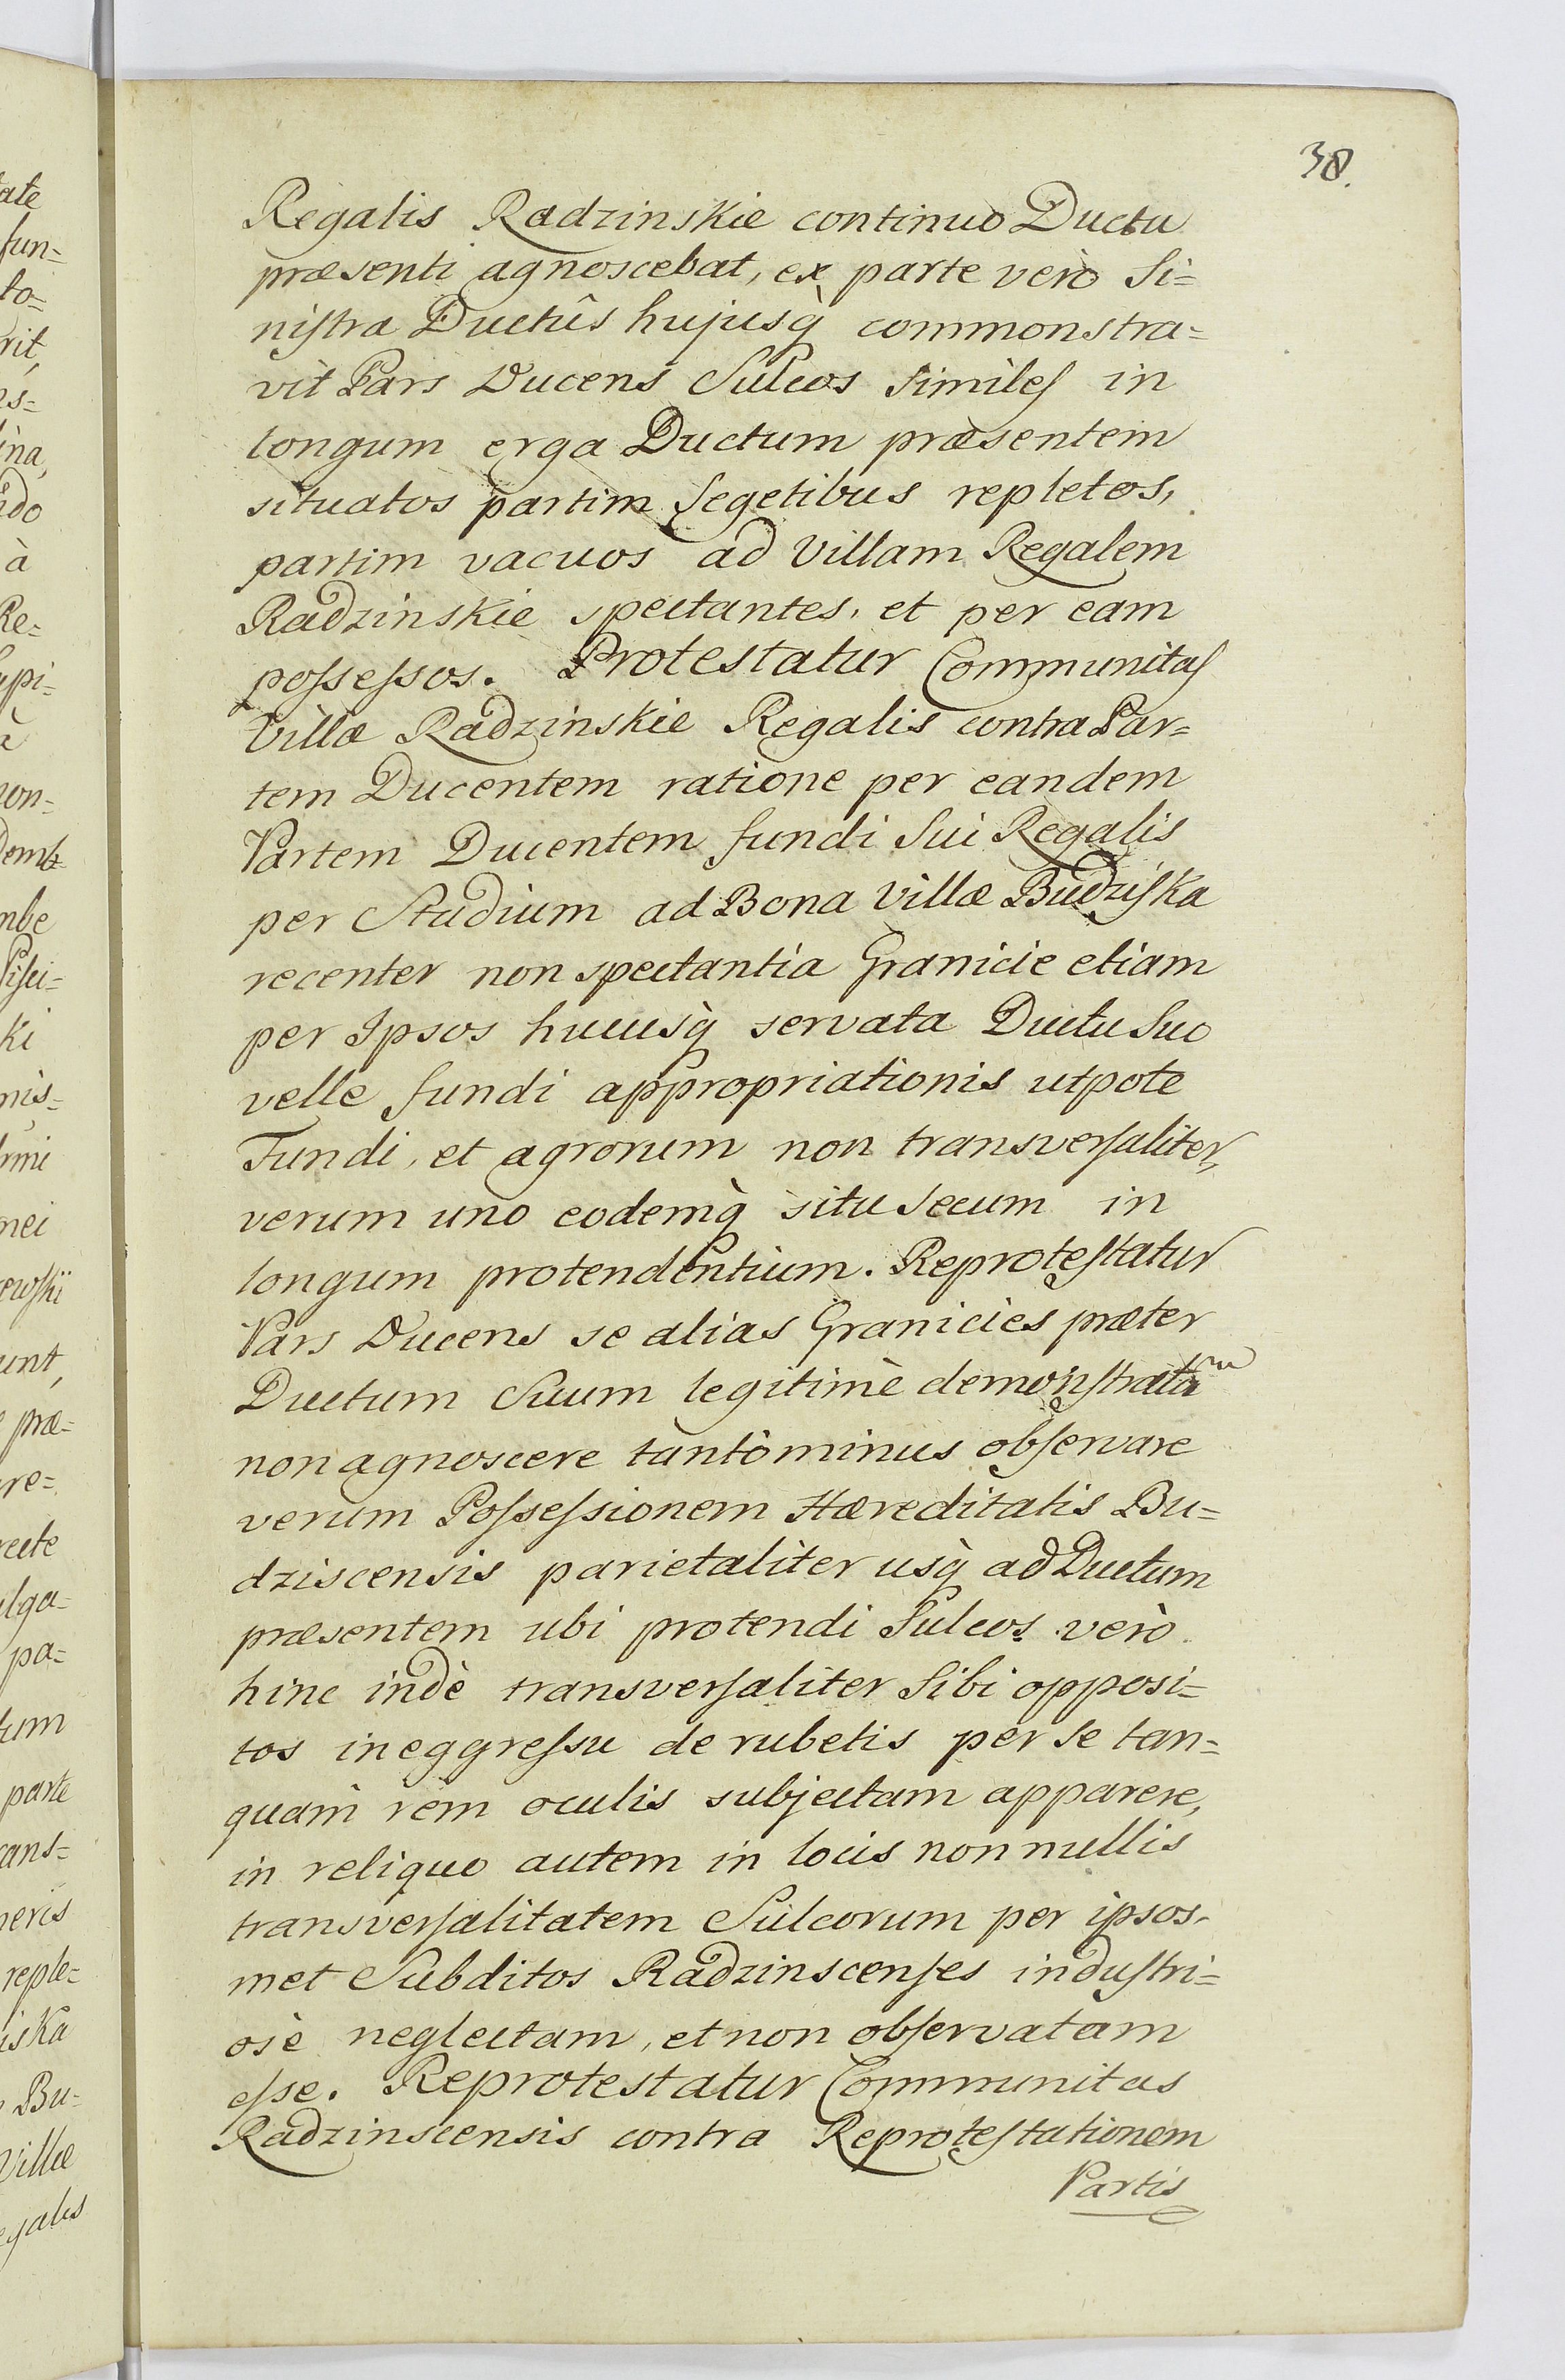 38.
Regalis Radzinskie continuo Ductu
præsenti agnoscebat, ex parte verò Si=
niſtra Ductûs hujusq̀ commonstra=
vit Pars Ducens Sulcos Simileſ in
longum erga Ductum præsentem
situatos partim Segetibus repletos,
partim vacuos ad Villam Regalem
Radzinskie spectantes, et per eam
poſseſsos. Protestatur Communitaſ
Villæ Radzinskie Regalis contra Par=
tem Ducentem ratione per eandem
Partem Ducentem fundi Sui Regalis
per Studium ad Bona Villæ Budziſka
recenter non spectantia Granicie etiam
per Ipsos hucusq̀ servata Ductu Suo
velle fundi appropriationis utpote
Fundi, et agrorum non transverſaliter,
verum uno eodemq̀ situ Secum in
longum protendentium. Reproteſtatur
Pars Ducens se alias Granicies præter
Ductum Suum legitimè demonſtratam
non agnoscere tantò minus obſervare
verum Poſseſsionem Hæreditatis Bu=
dziscensis parietaliter usq̀ ad Ductum
præsentem ubi protendi Sulcos verò
hinc indè transverſaliter Sibi opposi=
tos in eggreſsu de rubetis per Se tan=
quam rem oculis subjectam apparere,
in reliquo autem in locis non nullis
transverſalitatem Sulcorum per ipsos
met Subditos Radzinscenſes induſtri=
osè neglectam, et non obſervatam
eſse. Reprotestatur Communitas
Radzinscensis contra Reproteſtationem
Partis